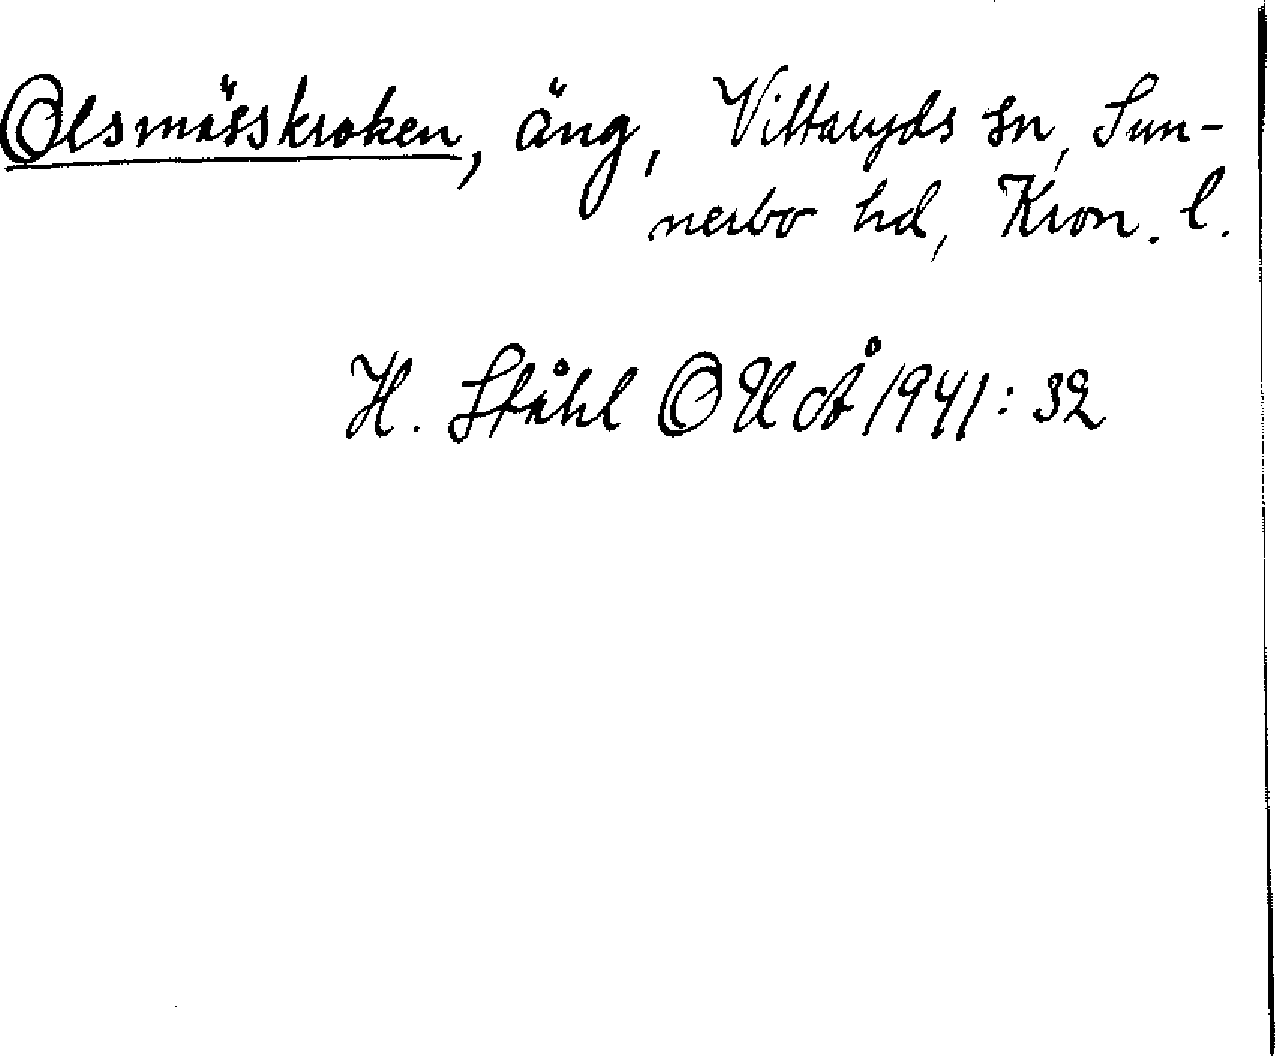 Olsmässkroken, äng, Vittaryds sn, Sun-
nerbo hd, Kron. l.
H. Ståhl OUÅ 1941: 32